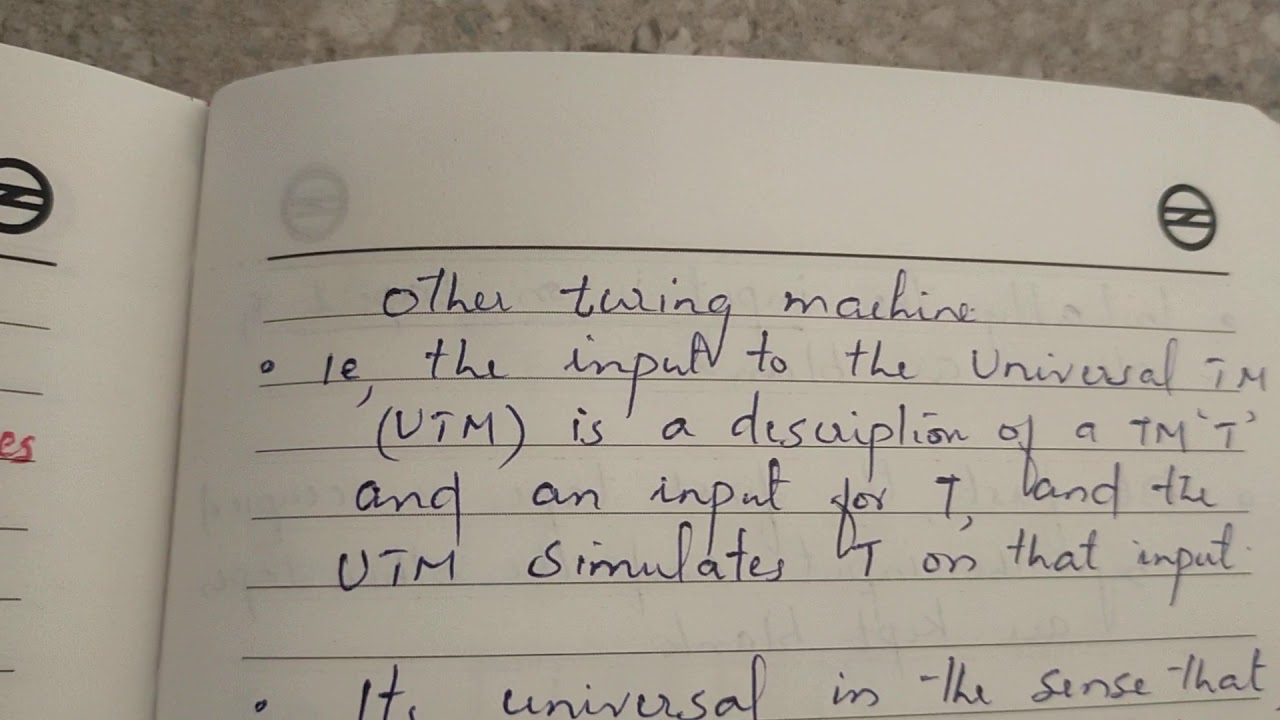 es
other turing machine.
• ie, the input to the Universal TM
(UTM) is a description of a TM 'T'
and an input for T, and the
UTM simulates T on that input.
• Its universal in the sense that